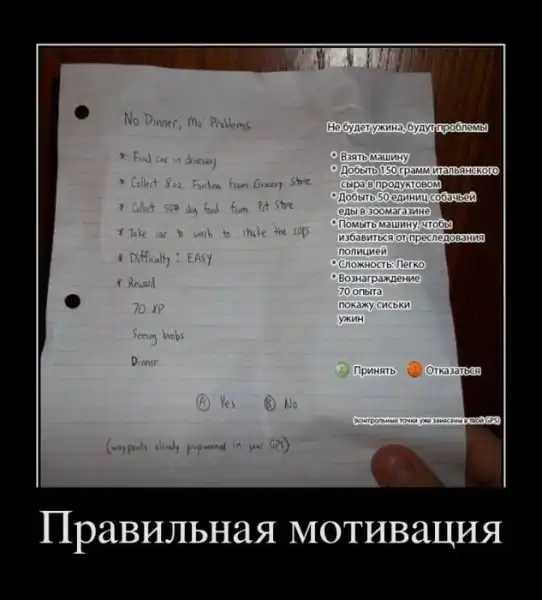 No Dinner, Mo Problems
* Find car in driveway
* Collect 8oz Fontina from Grocery Store
* Collect 50# dog food from Pet Store
* Take car to wash to shake the cops
* Difficulty: EASY
* Reward
70 XP
Seeing boobs
Dinner
Ⓐ Yes Ⓑ No
(waypoints already programmed in your GPS)
Не будет ужина, будут проблемы
* Взять машину
* Добыть 150 грамм итальянского
сыра в продуктовом
* Добыть 50 единиц собачьей
еды в зоомагазине
* Помыть машину, чтобы
избавиться от преследования
полицией
* Сложность: Легко
* Вознаграждение
70 опыта
покажу сиськи
ужин
Принять Отказаться
(контрольные точки уже занесены в твой GPS)
Правильная мотивация